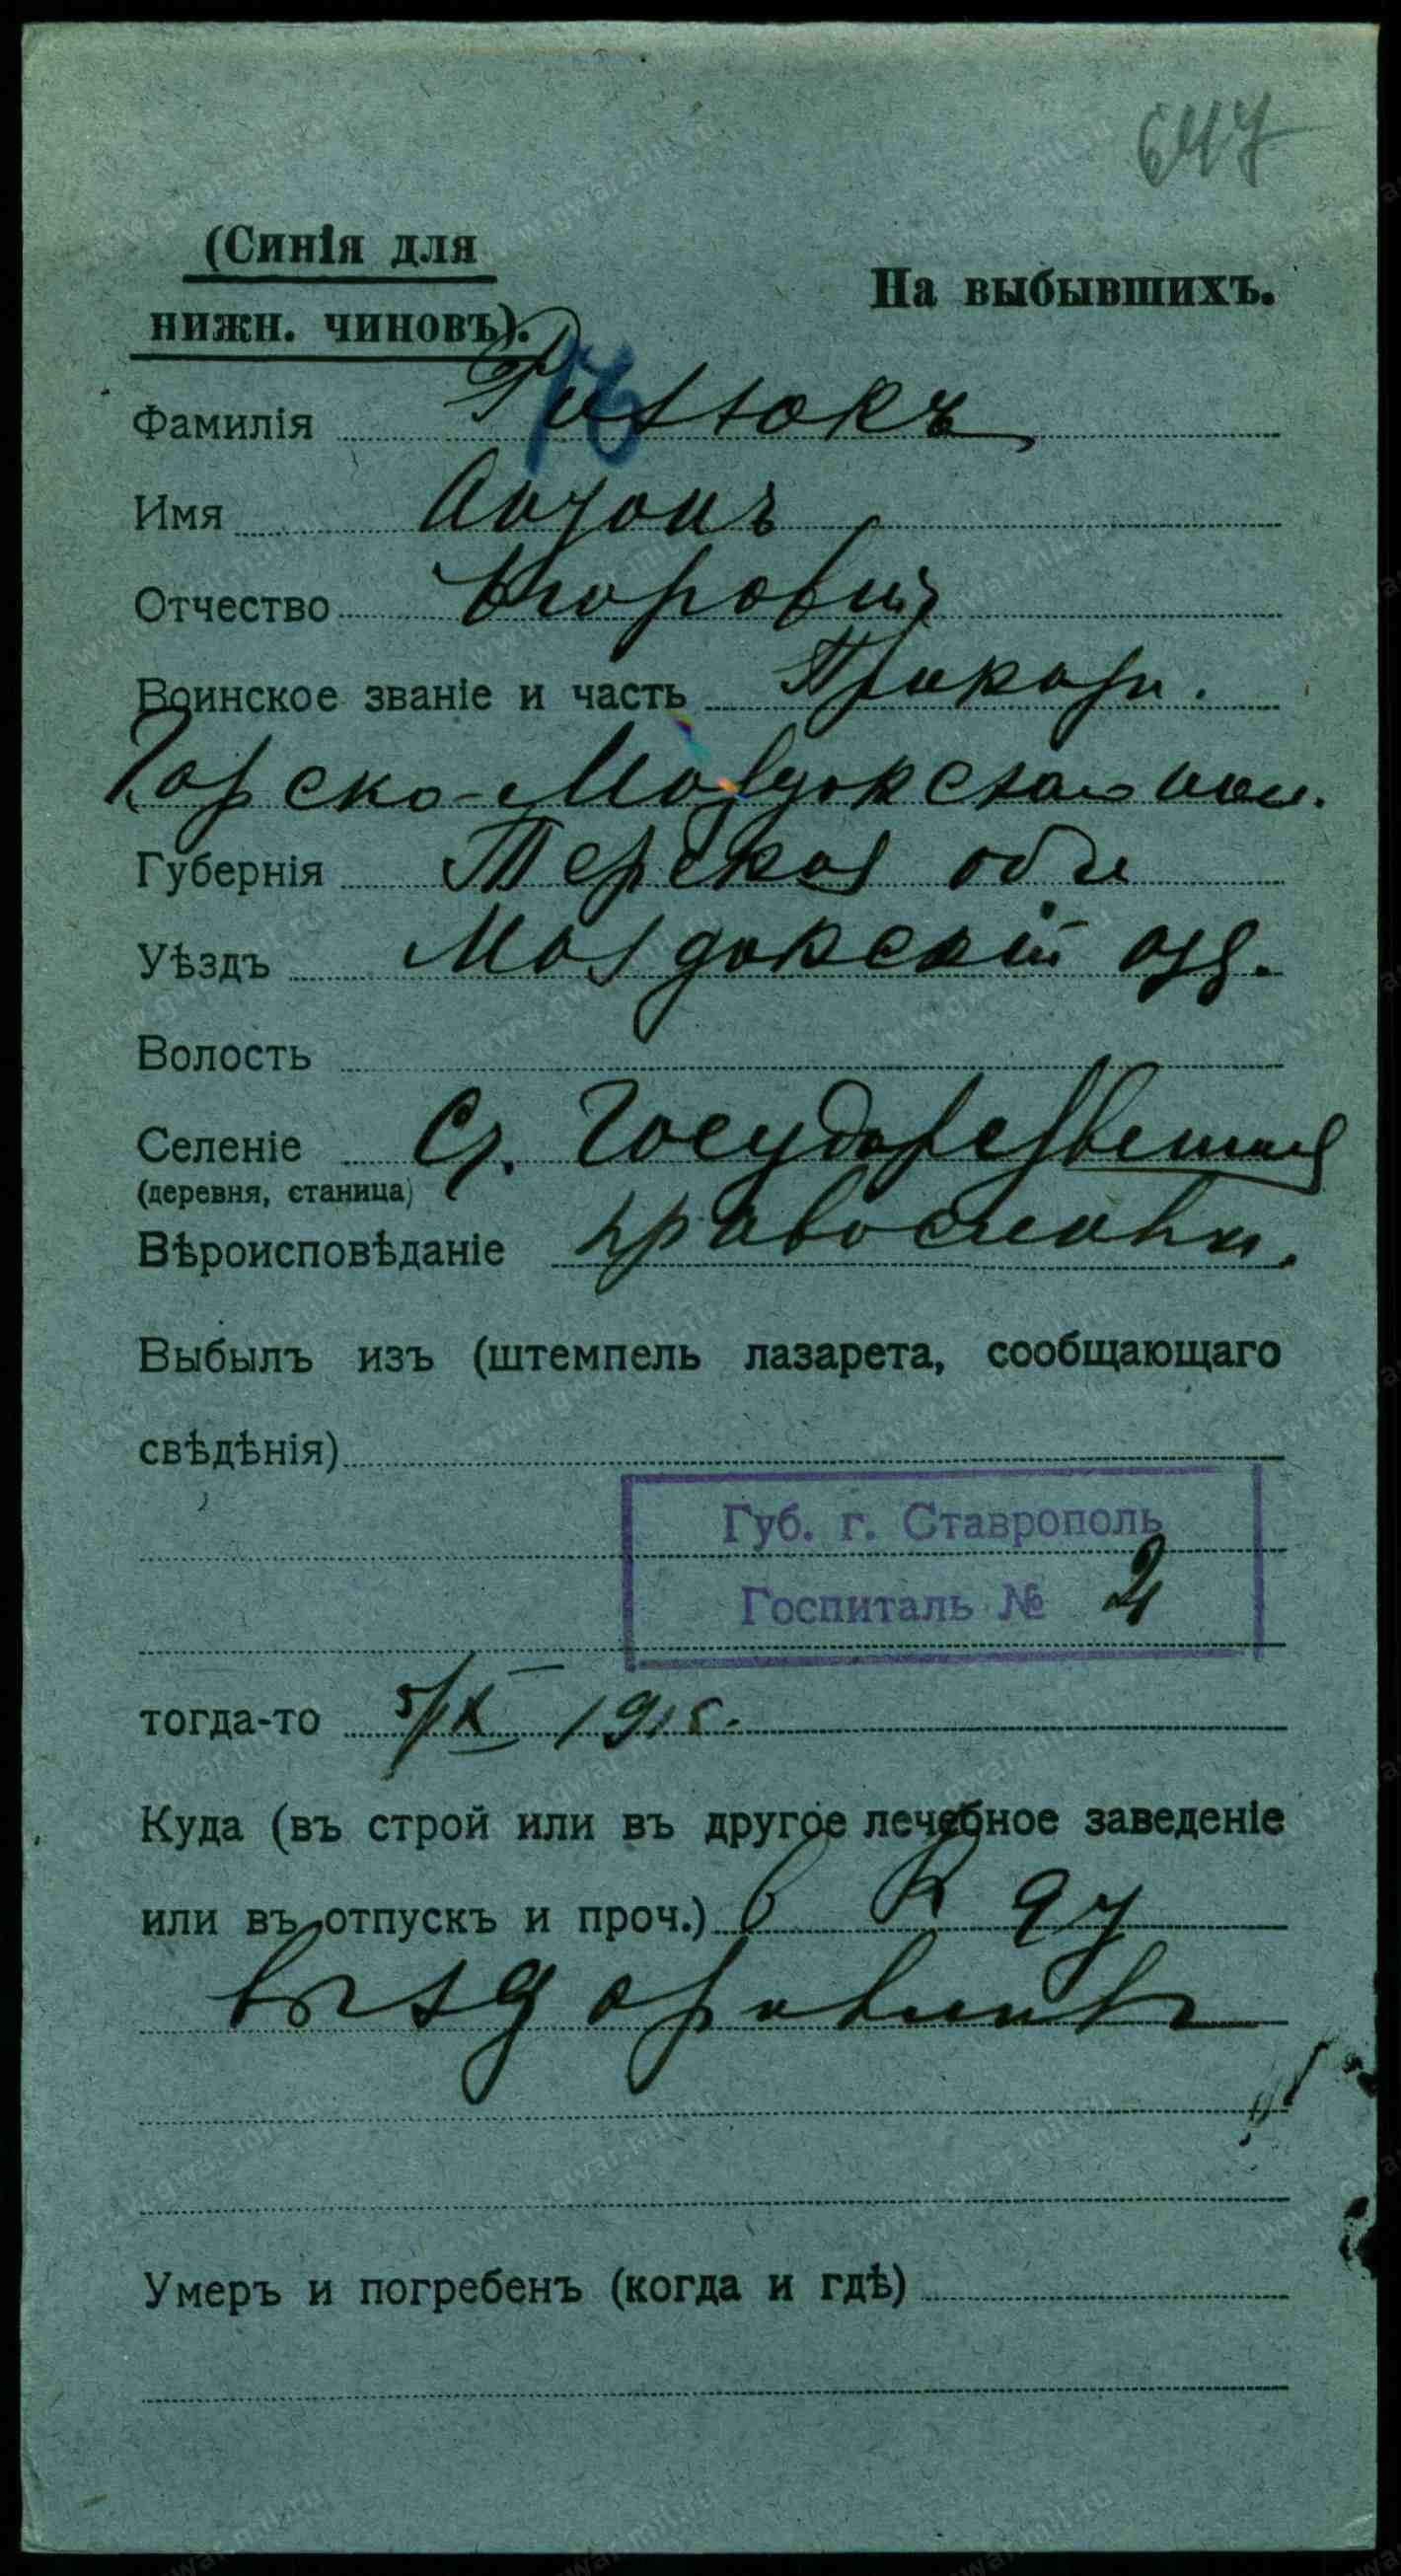 647
(Синія для
нижн. чиновъ).
На выбывшихъ.
Фамилія
Имя Антонъ
Отчество Егоровичъ
Воинское званіе и часть
Горско-Моздокскаго пол.
Губернія Терская обл
Уѣздъ Моздокскій отд.
Волость
Селеніе Ст. Государственная
(деревня, станица)
Вѣроисповѣданіе православн.
Выбылъ изъ (штемпель лазарета, сообщающаго
свѣдѣнія)
Губ. г. Ставрополь
Госпиталь № 2
тогда-то 5/IX 1915.
Куда (въ строй или въ другое лечебное заведеніе
или въ отпускъ и проч.) в
Умеръ и погребенъ (когда и гдѣ)